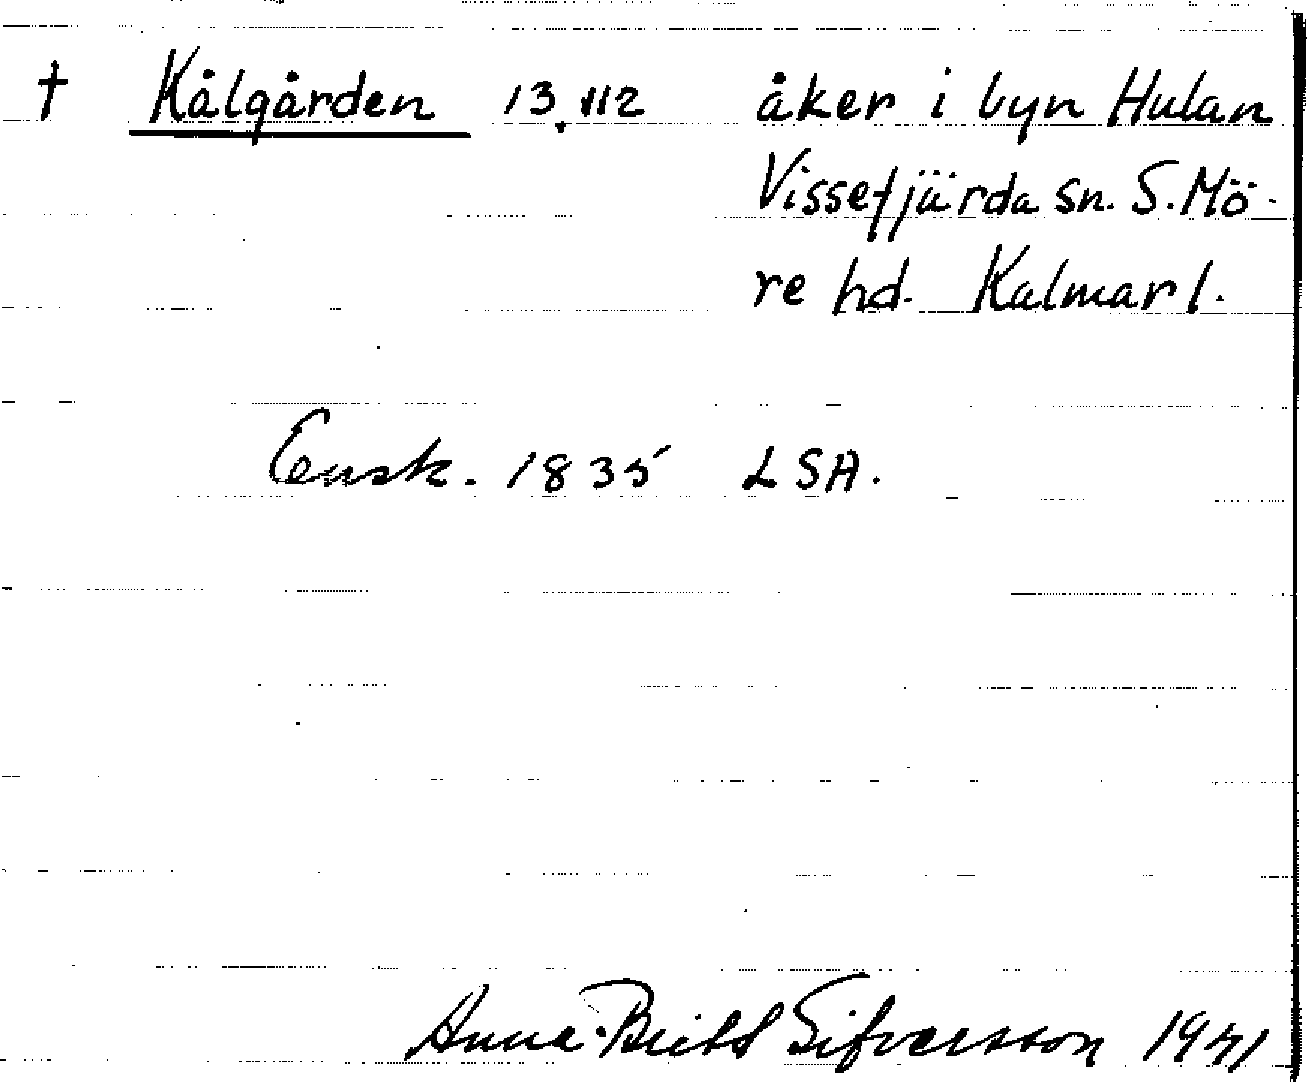 † Kålgården 13.112 åker i byn Hulan
Vissefjärda sn. S. Mö-
re hd. Kalmar l.
Ensk. 1835 LSA.
Anna-Britt Sifversson 1941